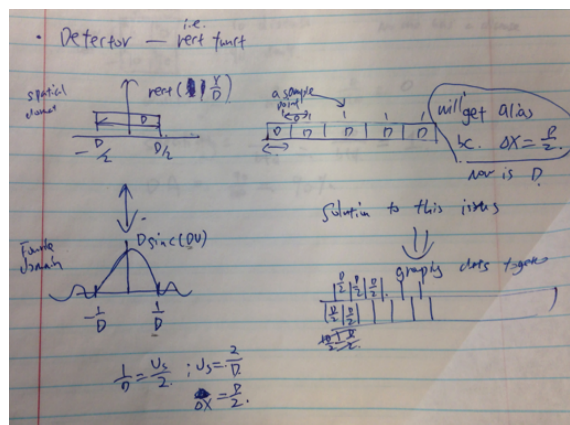 i.e.
• Detector — rect funct
spatial
rect( x/D )
D
- D/2
D/2
a sample
point
D
D D D D D
will get alias
bc. ΔX = D/2.
now is D.
Solution to this issus
Fourie
domain
Dsinc(DU)
- 1/D
1/D
D/2 D/2 D/2
D/2 D/2
1/D = Us/2 ; Us = 2/D
ΔX = D/2.